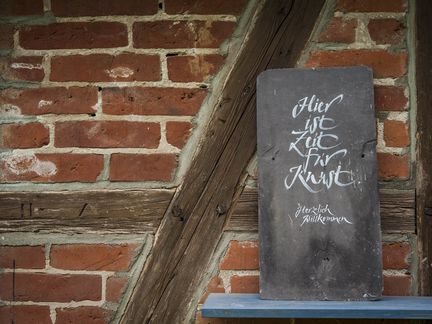 Hier
ist
Zeit
für
Kunst
Herzlich
Willkommen